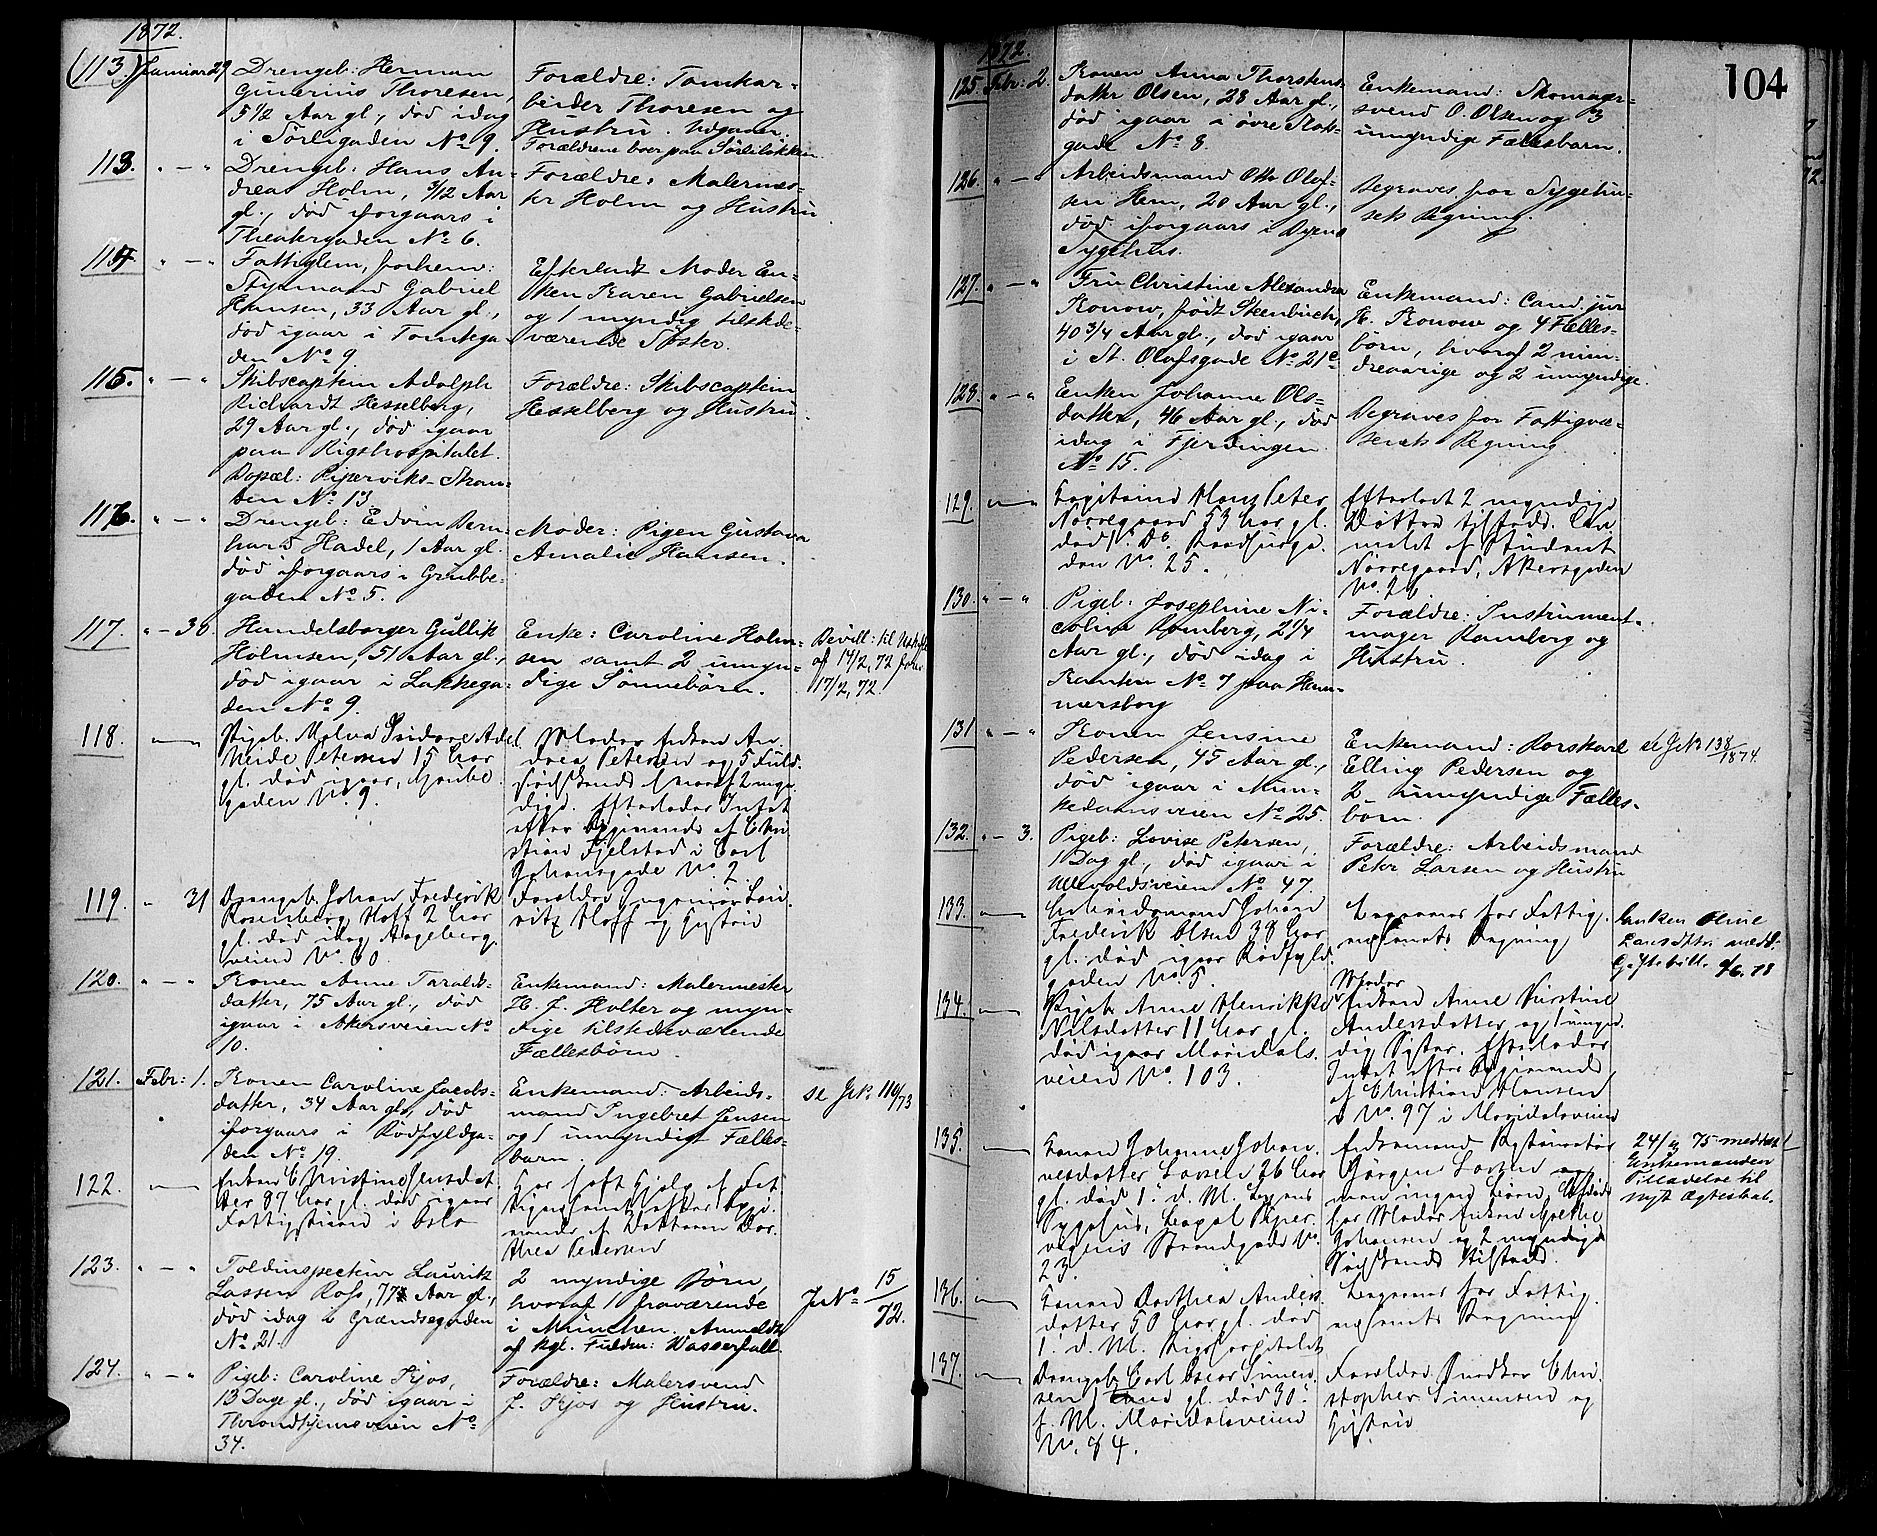 1872.
(113.) Januar 29
Drengeb: Herman
Gunerius Thoresen,
5 1/2 Aar gl., död idag
i Sörligaden No 9.
Forældre: Tomtear-
beider Thoresen og
Hustru. Udgaaer.
Forældrene boer paa Sörlilökken.
113. " — "
Drengeb: Hans An-
dreas Holm, 3/12 Aar
gl., död iforgaars i
Theatergaden No 6.
Forældre: Malermes-
ter Holm og Hustru.
114. " — "
Fattiglem, forhenv:
Styrmand Gabriel
Hansen, 33 Aar gl.,
död igaar i Tomtega-
den No 9.
Efterladt Moder En-
ken Karen Gabrielsen
og 1 myndig tilstede-
værende Söster.
115. " — "
Skibscaptein Adolph
Richardt Hesselberg,
29 Aar gl., död igaar
paa Rigshospitalet.
Bopæl: Piperviks-Tom-
ten No 13.
Forældre: Skibscaptein
Hesselberg og Hustru.
116. " — "
Drengeb: Edvin Bern-
hard Hadel, 1 Aar gl.
död iforgaars i Grubbe-
gaden No 5.
Moder: Pigen Gustava
Amalie Hansen.
117. " — 30.
Handelsborger Gullik
Holmsen, 51 Aar gl.,
död igaar i Lakkega-
den No 9.
Enke: Caroline Holm-
sen samt 2 umyn-
dige Sönnebörn.
Bevill: til
af 14/2, 72
17/2, 72.
118.
Pigeb. Petersen 15 Aar
gl. död igaar, Grubbe
gaden No. 9.
Moder Enken An-
drea Petersen og 5 Fuld-
södskende hvoraf 2 myn-
dige. Efterlader Intet
efter Opgivende af Chri
stian Fjelstad i Carl
Johansgade No. 2.
119. " 31
Drengeb. Johan Frederik
Rosenberg Hoff 2 Aar
gl. död idag
veien No. 60.
Forældre Ingeniør Lau-
ritz Hoff og Hustru
120. " — "
Konen Anne Taralds-
datter, 75 Aar gl., död
igaar i Akersveien No
10.
Enkemand: Malermester
H. J. Holter og myn-
dige tilstedeværende
Fællesbörn.
121. Febr: 1.
Konen Caroline Jacobs-
datter, 34 Aar gl., död
iforgaars i Rödfyldga-
den No 19.
Enkemand: Arbeids-
mand Ingebret Jensen
og 1 umyndig Fælles-
barn.
se J.No 110/73
122.
Enken Christine Jensdat
ter 87 Aar gl. död igaar
i Oslo
Har haft Hjelp af Fat
tigvæsenet efter Opgi-
vende af Datteren Dor-
thea Pedersen
123. " — "
Toldinspecteur Lauritz
Lassen Ross, 77 Aar gl.,
död idag i Grændsegaden
No 21.
2 myndige Börn,
hvoraf 1 fraværende
i München. Anmeldt
af kgl. Fuldm: Wasserfall.
J.No 15/72.
124. " — "
Pigeb: Caroline Kjos,
13 Dage gl., död igaar i
Throndhjemsveien No
34.
Forældre: Malersvend
J. Kjos og Hustru.
104
1872.
125. Febr: 2.
Konen Anna Thorstens-
datter Olsen, 28 Aar gl.,
död igaar i övre Slots-
gade No 8.
Enkemand: Skomager-
svend O. Olsen og 3
umyndige Fællesbarn.
126. " — "
Arbeidsmand Ole Olof-
sen Hem, 20 Aar gl.,
död iforgaars i Byens
Sygehus.
Begraves for Sygehu-
sets Regning.
127. " — "
Fru Christine Alexandra
Konow, födt Steenbuch,
40 3/4 Aar gl., död igaar
i St. Olafsgade No 21c
Enkemand: Cand. jur
K. Konow og 4 Fælles-
börn, hvoraf 2 min-
dreaarige og 2 umyndige.
128. " — "
Enken Johanne Ols-
datter, 46 Aar gl., död
idag i Fjerdingen
No 15.
Begraves for Fattigvæ-
senets Regning.
129.
Hans Peter
Nörregaard 53 Aar gl.
död 1. Ds. Raadhusga-
den No. 25.
Efterladt 2 myndige
Döttre tilstede. An
meldt af Student
Nörregaard, Akersgaden
No. 26
130. " — "
Pigeb: Josephine Ni-
coline Ramberg, 2 1/4
Aar gl., död idag i
Kanten No 7 paa Ham-
mersborg
Forældre: Instrument-
mager Ramberg og
Hustru.
131 " — "
Konen Jensine
Pedersen, 45 Aar gl.,
död igaar i Mun-
kedamsveien No 25.
Enkemand: Rorskarl
Elling Pedersen og
2 umyndige Fælles-
börn.
se J.No 138/1874.
132. " — 3.
Pigeb: Lovise Petersen,
1 Dag gl., död igaar i
Ullevoldsveien No 47.
Forældre: Arbeidsmand
Peter Larsen og Hustru
133.
Arbeidsmand Johan
Frederik Olsen 38 Aar
gl. död igaar Rödfyld-
gaden No. 5.
Begraves for Fattig-
væsenets Regning
Enken Oline
Larsdtr. medd.
6/6. 78
134.
Pigeb. Anne Henrikke
Nilsdatter 11 Aar gl.
död igaar Maridals-
veien No. 103.
Moder
Enken Anne Kirstine
Andersdatter og 1 umyn-
dig Söster. Efterlader
Intet efter Opgivende
af Christian Hansen
No. 97 i Maridalsveien
135.
Konen Johanne Johan-
nesdatter Larsen 26 Aar
gl. död 1. d. M. Byens
Sygehus, Bopæl Piper-
vigens Strandgade No.
23.
Enkemand
Jörgen Larsen og
men ingen Börn. Afdöde
har Moder Enken
Johansen og 2 myndige
Södskende tilstede.
24/4 75 meddelt
Enkemanden
Tilladelse til
nyt Ægteskab.
136.
Konen Dorthea Anders-
datter 50 Aar gl. död
1. d. M. Rigshospitalet
Begraves for Fattig-
væsenets Regning
137.
Drengeb. Carl Oscar Simen-
sen 1 gl. död 30.
f. M. Maridalsveien
No. 84.
Forældre Snedker Chri
stopher Simensen og
Hustru